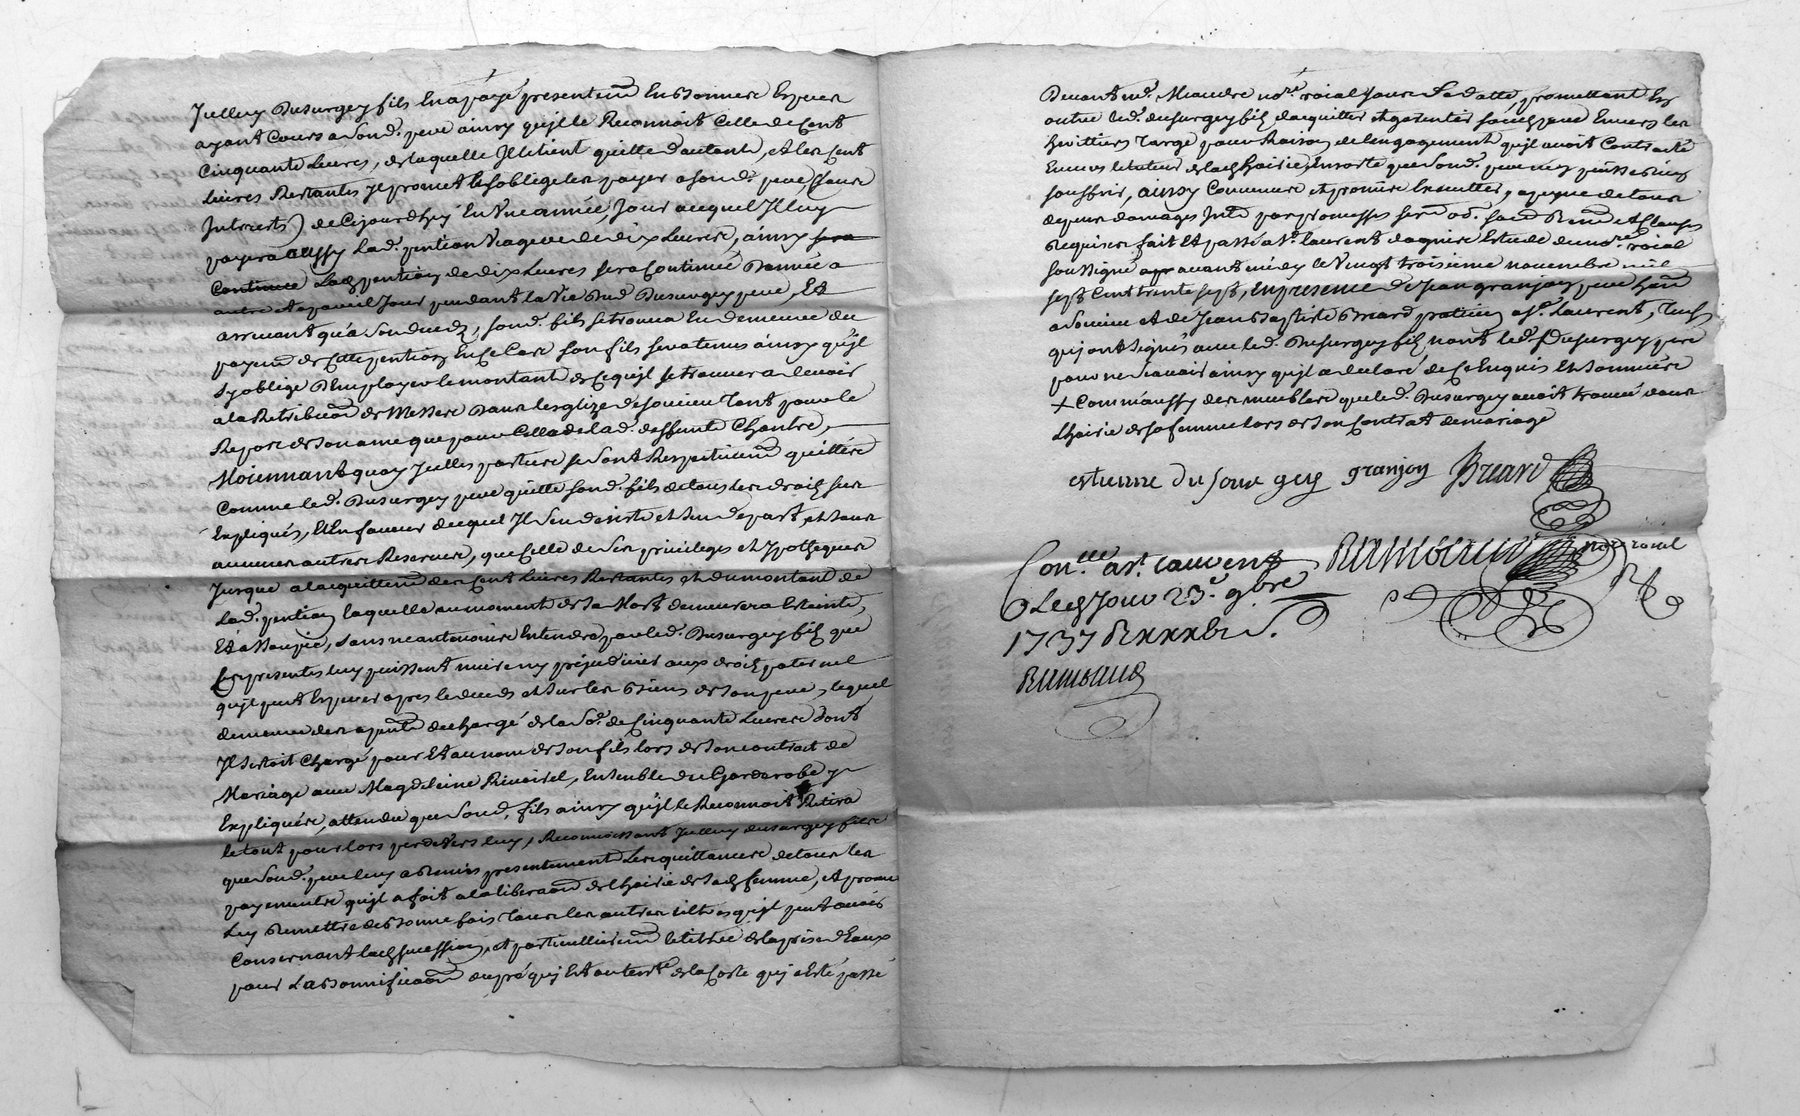 Jcelluy Dusurgey fils En a payé presentemt En bonnere Espeer
ayant Cours a Sond. pere ainsy quil le Reconnoit Celle de Cent
Cinquante Livres, de laquelle Il le tient quitte dautant, et les Cent
livres Restantes Il promet Et soblige les payer a sond. pere (sauer
Interests) de Cejourdhuy En Une année, Jour auquel Il luy
payera aussy Lad. pention Viagere de dix Livres, ainsy sera
Continuee Lad. pention de dix Livres sera Continuée Dannée a
autre et a pareil Jour pendant la Vie Dud Dusurgey pere, Et
arrivant qu'a Son deceds, sond. fils se trouva En demeure du
payemt de Cette pention En Ce Cas son fils sera tenus ainsy quil
S'y oblige D'Employer le montant de Ce quil se trouvera devoir
a la Retribuon de Messes Dans lesglize de soucieu tant pour le
Repos de Son ame que pour Celle de lad. deffunte Chantre,
Moiennant quoy Jcelles parties se sont Respectivemt quittées
Comme led. Dusurgey pere quitte sond. fils de tous les droits sus
Expliqués, Et En faveur duquel Il sen desiste et sen depart, et sans
aucunes autres Reserves, que Celle de Ses privileges et Ypotheques
Jusque a lacquittemt des Cent livres Restantes et du montant de
Lad. pention laquelle au moment de Sa Mort demeurera Esteinte,
Et assoupie, sans neantmoins Entendre par led. Dusurgey fils que
Ces presentes luy puissent nuire ny préjudicier aux droits paternel
quil peut Esperer apres le deceds et sur les Biens de son pere, lequel
demeure des a pnt dechargé de la So.e de Cinquante Livres dont
Il s'estoit Chargé pour Et au nom de son fils lors de son contrat de
Mariage avec Magdeleine Rivoirel, Ensemble du Garderobe y
Expliquée, attendu que Sond. fils ainsy quil le Reconnoit Retira
le tout pour lors perdevers luy, Reconnoissant Jcelluy dusurgey fils
que Sond. pere luy a Remis presentement Les quittances de tous les
payements quil a fait a la liberaon de lhoirie de Sad. femme, et promet
Luy Remettre de bonne foix tous les autres titres quil peut avoir
Consernant lad. sucession, et particulierement le titre de la prise d'Eaux
pour Labonnificaon du pré qui Est au terre de la Coste qui a Esté passé
Devant me. Meaudre nore. roial sous Sa datte, promettant En
outre led. dusurgey fils dacquitter et garentir son pere Envers les
heritiers Targe pour Raison de lengagement quil avoit Contracté
Envers le tuteur de lad. hoirie, Ensorte que Sond. pere nen puisse rien
souffrir, ainsy Convenu et promis Executter, a peyne de tous
depens domages Intts par promesses sermt obl. soumd Renon et Clauses
Requises fait Et passé a St. laurent dagnies Estude du nore. roial
soussigné avant midy le Vingt troisieme novembre mil
sept Cent trente sept, En presence de Jean granjon pere
a Soucieu et de Jean Baptiste Breard praticien a St. Laurent, Tesm.
qui ont Signés avec led. Dusurgey fils, non led. Dusurgey pere
pour ne Scavoir ainsy quil a declaré de Ce Enquis Et Sommé
+ Comm'aussy des meubles que led. Dusurgey avoit trouvé dans
Lhoirie de sa femme lors de son Contrat de mariage
estienne du sour gey granjon Breard
Con.lle a St. Laurent
Led. Jour 23e. 9bre
1737